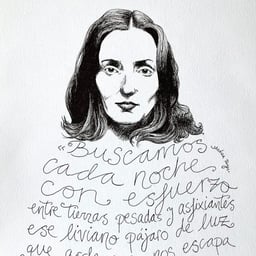 «Buscamos
cada noche
con esfuerzo
entre tierras pesadas y asfixiantes
ese liviano pájaro de luz
que arde nos escapa